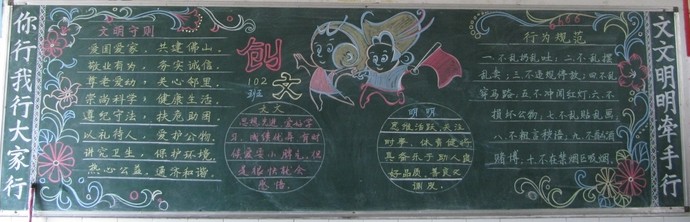 你行我行大家行
文明守则
爱国爱家，共建佛山。
敬业有为，务实诚信。
尊老爱幼，关心邻里。
崇尚科学，健康生活。
遵纪守法，扶危助困。
以礼待人，爱护公物。
讲究卫生，保护环境。
热心公益，通济和谐。
创文
102班
文文
思想先进，爱好学
习，成绩优异，有时
候爱耍小脾气，但
是很快就会
悔悟
明明
思维活跃，关注
时事，体育健将，
具备乐于助人良
好品质，善良又
调皮。
行为规范
一、不乱扔乱吐；二、不乱摆
乱卖；三、不违规停放；四、不乱
穿马路；五、不冲闯红灯；六、不
损坏公物；七、不乱贴乱画；
八、不粗言秽语；九、不酗酒
赌博；十、不在禁烟区吸烟。
文文明明牵手行